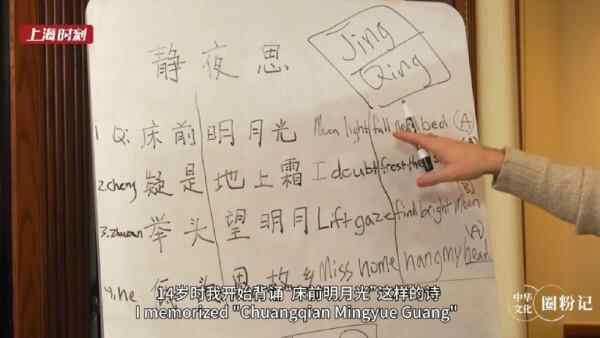 上海时刻
静夜思
Jing
Qing
1 Qi 床前明月光 Moon light fall my bed (A)
2.cheng 疑是地上霜 I doubt frost
3.zhuan 举头望明月 Lift gaze find bright moon (A)
4.he 头思故 Miss home hang my head
14岁时我开始背诵"床前明月光"这样的诗
I memorized "Chuangqian Mingyue Guang"
中华文化 圈粉记